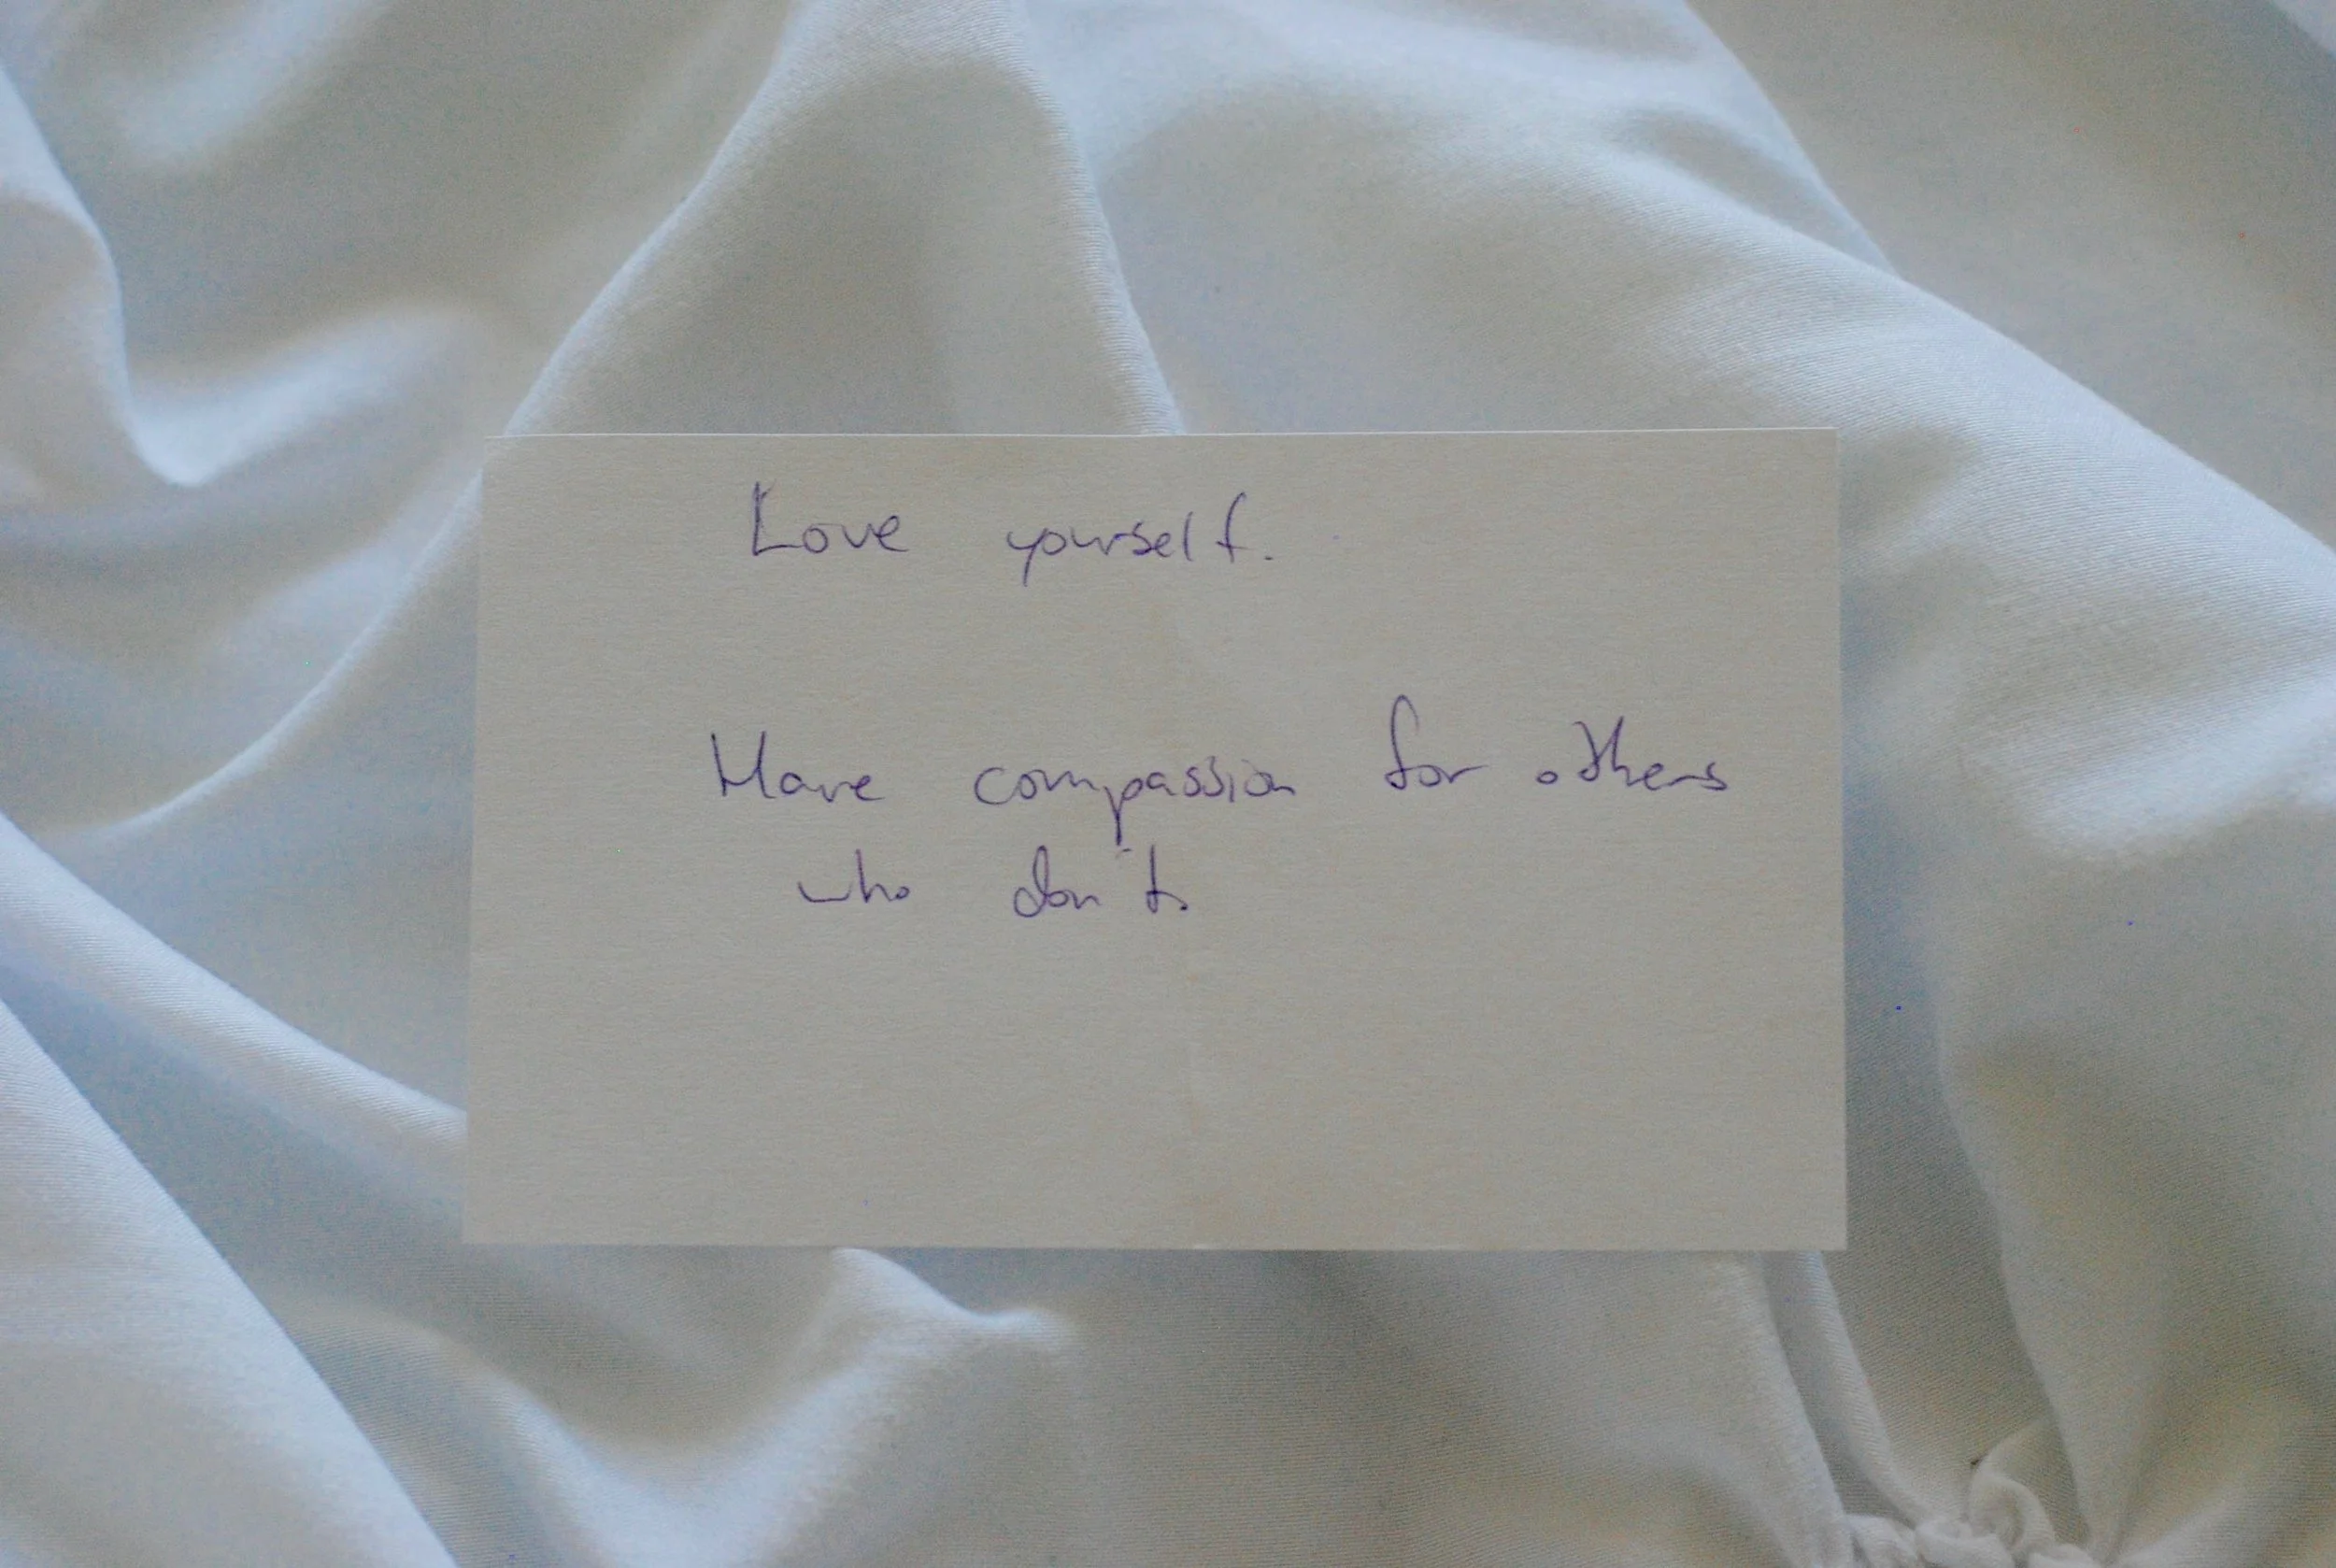 Love yourself.
Have compassion for others
who don't.